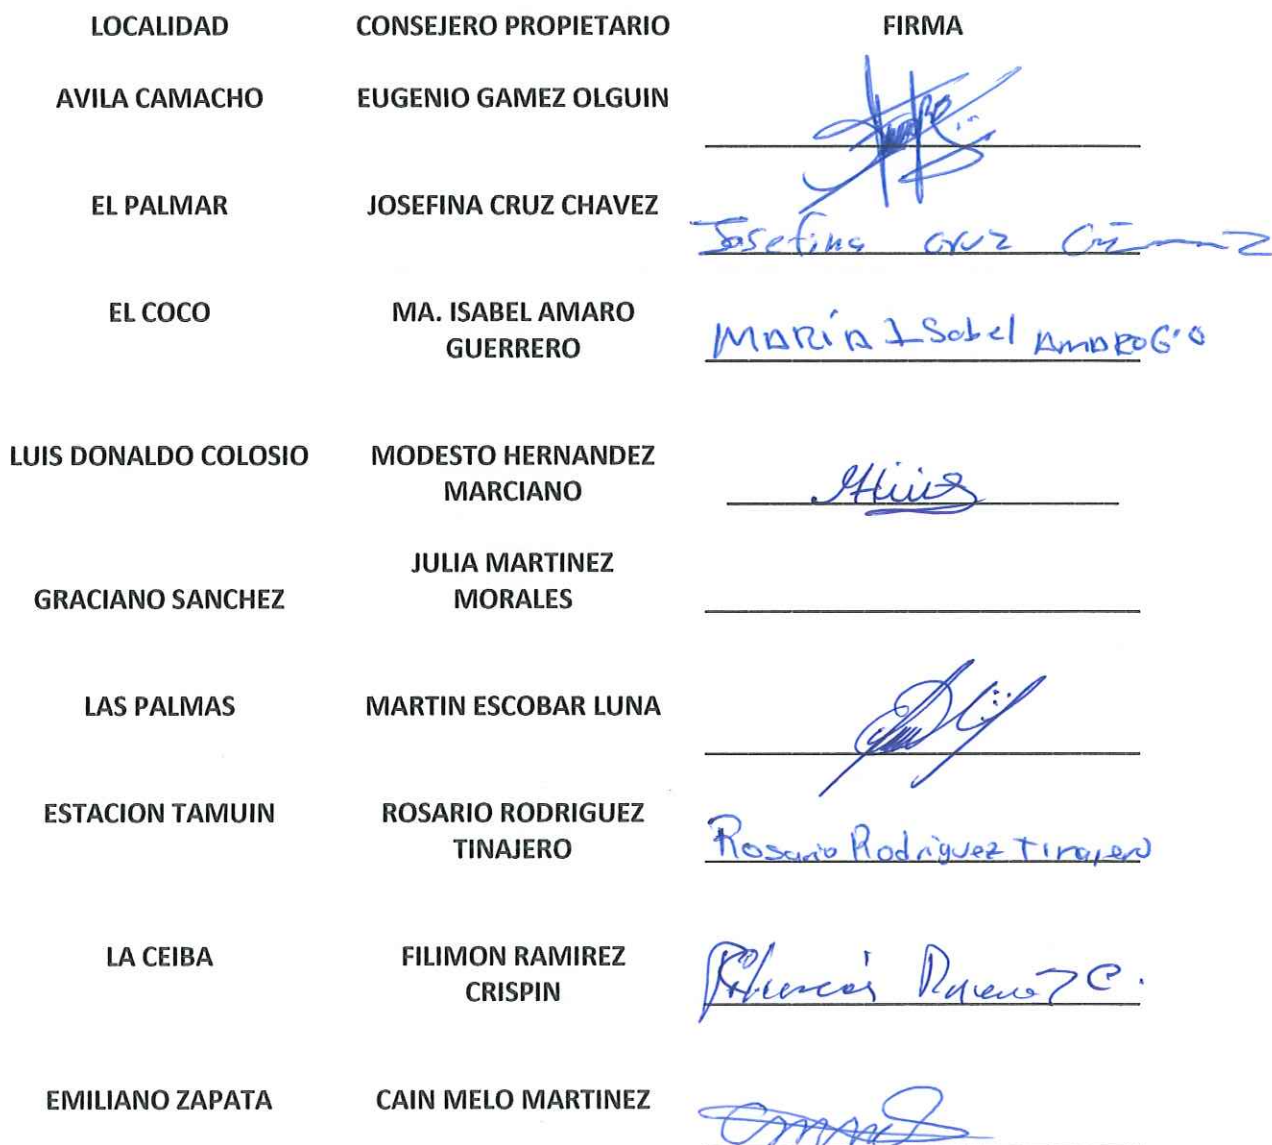 LOCALIDAD CONSEJERO PROPIETARIO FIRMA
AVILA CAMACHO EUGENIO GAMEZ OLGUIN
EL PALMAR JOSEFINA CRUZ CHAVEZ
Josefina cruz
EL COCO MA. ISABEL AMARO
GUERRERO
MARÍA ISabel AMARO
LUIS DONALDO COLOSIO MODESTO HERNANDEZ
MARCIANO
JULIA MARTINEZ
GRACIANO SANCHEZ MORALES
LAS PALMAS MARTIN ESCOBAR LUNA
ESTACION TAMUIN ROSARIO RODRIGUEZ
TINAJERO
Rosario Rodriguez Tinajero
LA CEIBA FILIMON RAMIREZ
CRISPIN
C.
EMILIANO ZAPATA CAIN MELO MARTINEZ